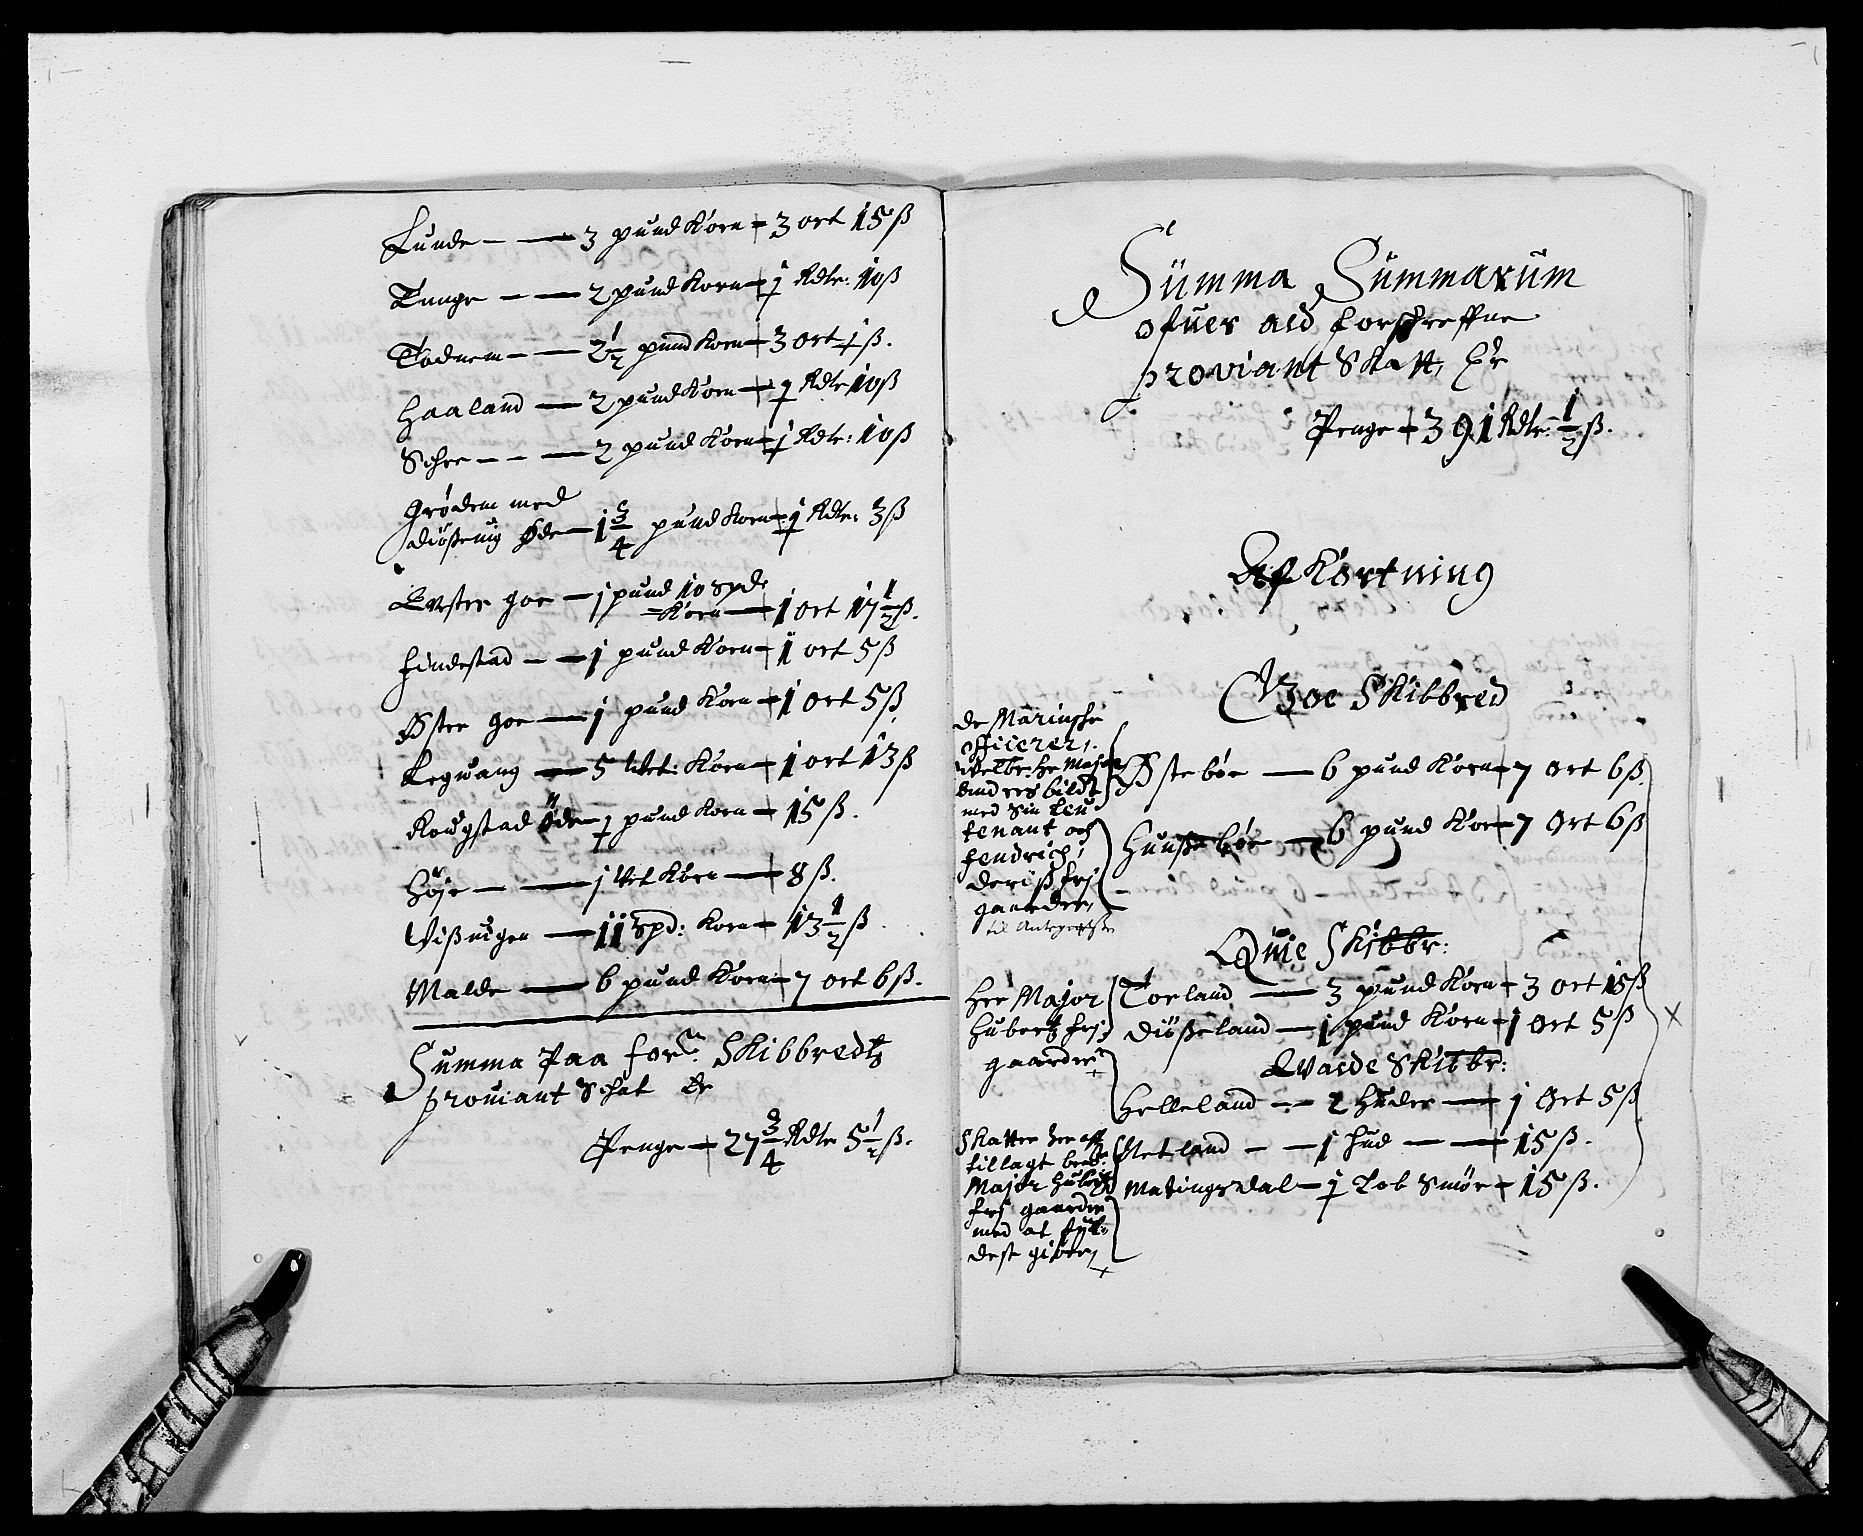 Lunde - — 3 pund Korn - 3 ort 15 ß
Tunge - — 2 pund Korn - 1 Rdlr: 10 ß
Todnem - — 2 1/2 pund Korn - 3 ort 1 ß.
Haaland — 2 pund Korn - 1 Rdlr 10 ß
Sehre - - — 2 pund Korn - 1 Rdlr: 10 ß
Grødem med
Øde — 1 3/4 pund Korn - 1 Rdlr: 3 ß
Vester goe — 1 pund 10 Spd
= Korn — 1 ort 17 1/2 ß.
Findestad - — 1 pund Korn - 1 ort 5 ß
Øster goe — 1 pund Korn - 1 ort 5 ß
Legwang — 5 Vet: Korn - 1 ort 13 ß
Rougstad øde - 1 pund Korn - 15 ß.
Høje - — 1 Vet Korn — 8 ß.
Vißnigen — 11 Spd: Korn - 13 1/2 ß
Malde — 6 pund Korn - 7 ort 6 ß.
Summa Paa for.ne Skibbredtz
prouiant Schat Er
Penge - 27 3/4 Rdlr 5 1/2 ß.
Summa Summarum
ofuer ald forschreffne
proviant Skatt, Er
Penge - 391 Rdlr: 1/2 ß.
Afkortning
Goe Skibbred
de Marinsche
officerer,
Velb: hr Major
Anders bildt
med Sin Leu
tenant och
fendrich,
deriß frj
gaarder,
Østebøe — 6 pund Korn - 7 ort 6 ß
Huußebøe — 6 pund Korn - 7 Ort 6 ß
Quie Skibbr:
Her Major
Hubertz frj
gaarder
Torland — 3 pund Korn - 3 ort 15 ß
Diößeland — 1 pund Korn - 1 Ort 5 ß
Walde Skibbr:
Helleland - - 2 Huder — 1 Ort 5 ß
Skatter her aff
tillagt
Major Hubertz
frj gaarder
med at fyl=
dest giører,
Netland - - 1 Hud - — 15 ß.
Matingsdal - 1 Lob Smør - 15 ß.